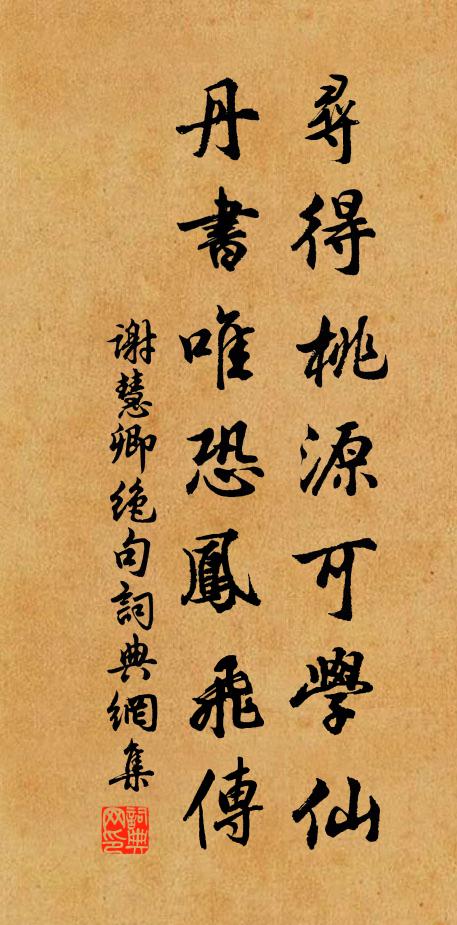 尋得桃源可學仙
丹書唯恐鳳飛傳
謝慧卿絕句詞典網集
詞典網印